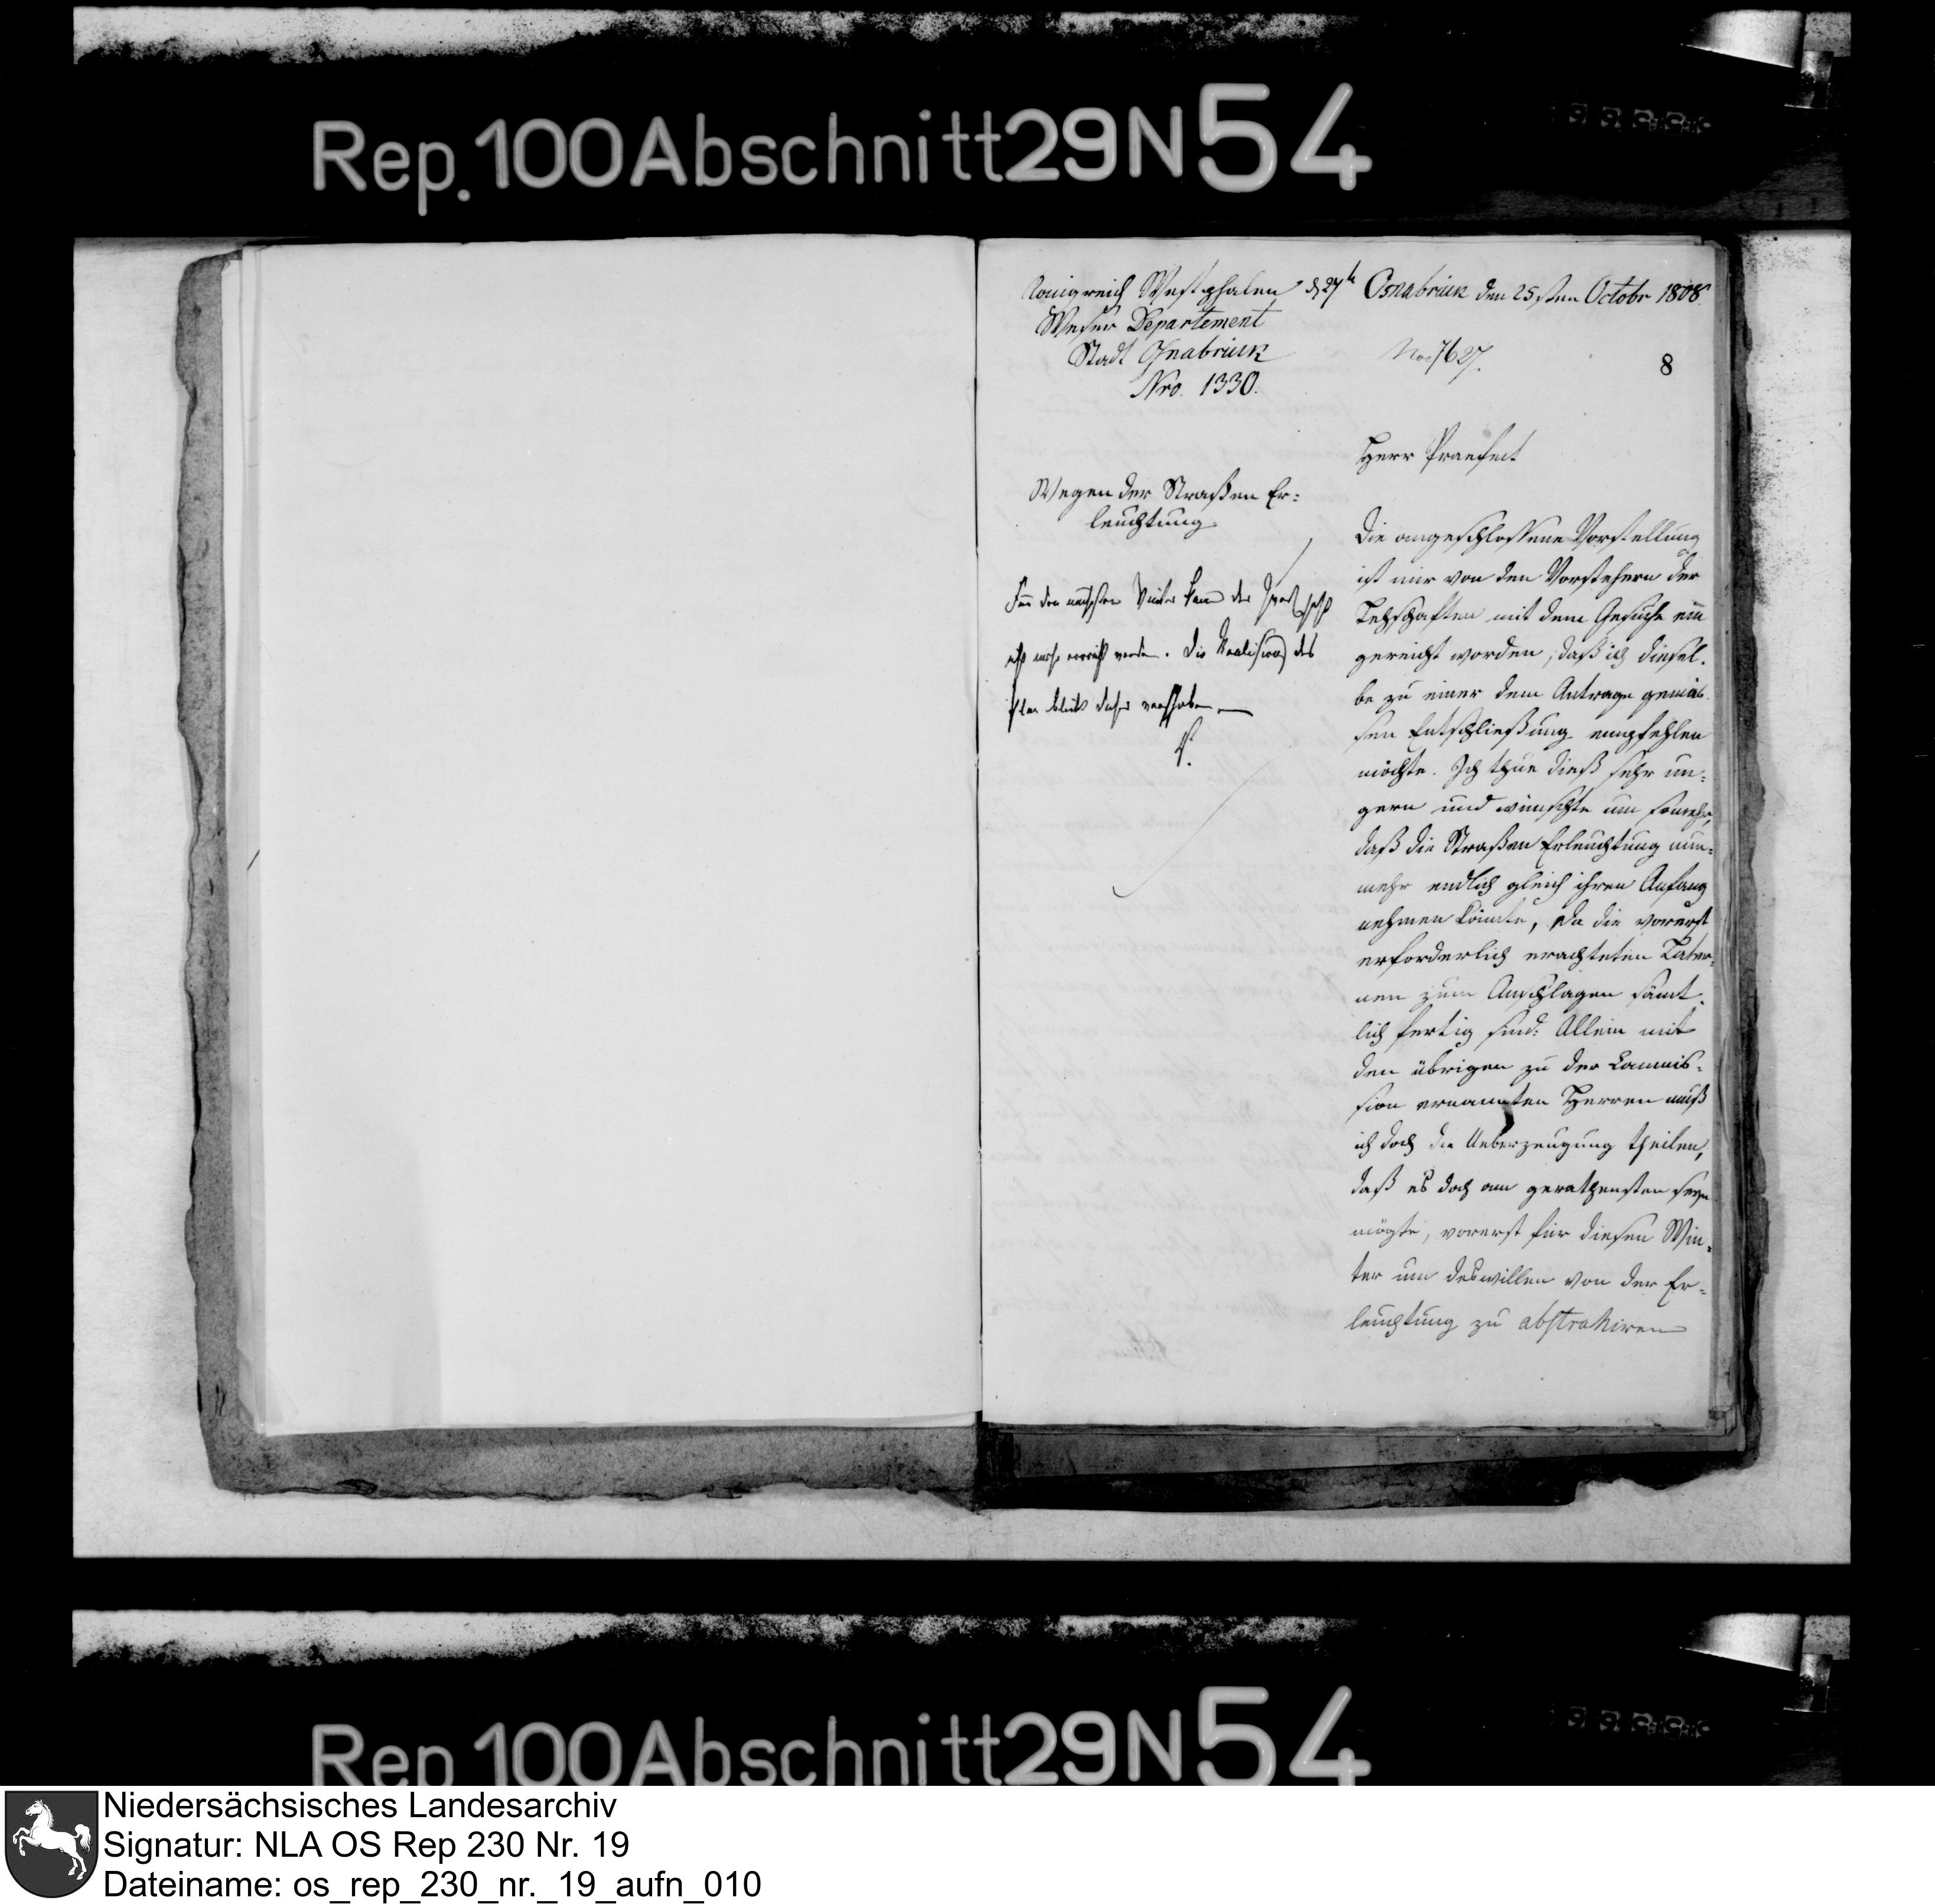 Rep. 100 Abschnitt 29 N 54
Königreich Westphalen
Weser Departement
Stadt Osnabrück
Nro. 1330.
Osnabrück den 25sten Octobr 1808.
No. 7627.
8
Wegen der Straßen Er=
leuchtung
Für den nächsten Winter kann der Zweck
nicht mehr erreicht werden. Die Realisirung des
bleibt daher verschoben
Herr Praefect
Die angeschlossene Vorstellung
ist mir von den Vorstehern der
Lehschaften mit dem Gesuche ein
gereicht worden, daß ich diesel.
be zu einer dem Antrage gemäs
sen Entschließung empfehlen
möchte. Ich thue dieß sehr un=
gern und wünschte um somehr,
daß die Straßen Erleuchtung nun=
mehr endlich gleich ihren Anfang
nehmen könnte, da die vorerst
erforderlich erachteten Later=
nen zum Anschlagen sämt.
lich fertig sind: Allein mit
den übrigen zu der Commis=
sion ernannten Herren muß
ich doch die Ueberzeugung theilen,
daß es doch am gerathensten seyn
mögte, vorerst für diesen Win=
ter um deswillen von der Er=
leuchtung zu abstrahiren
Rep 100 Abschnitt 29 N 54
Niedersächsisches Landesarchiv
Signatur: NLA OS Rep 230 Nr. 19
Dateiname: os_rep_230_nr._19_aufn_010